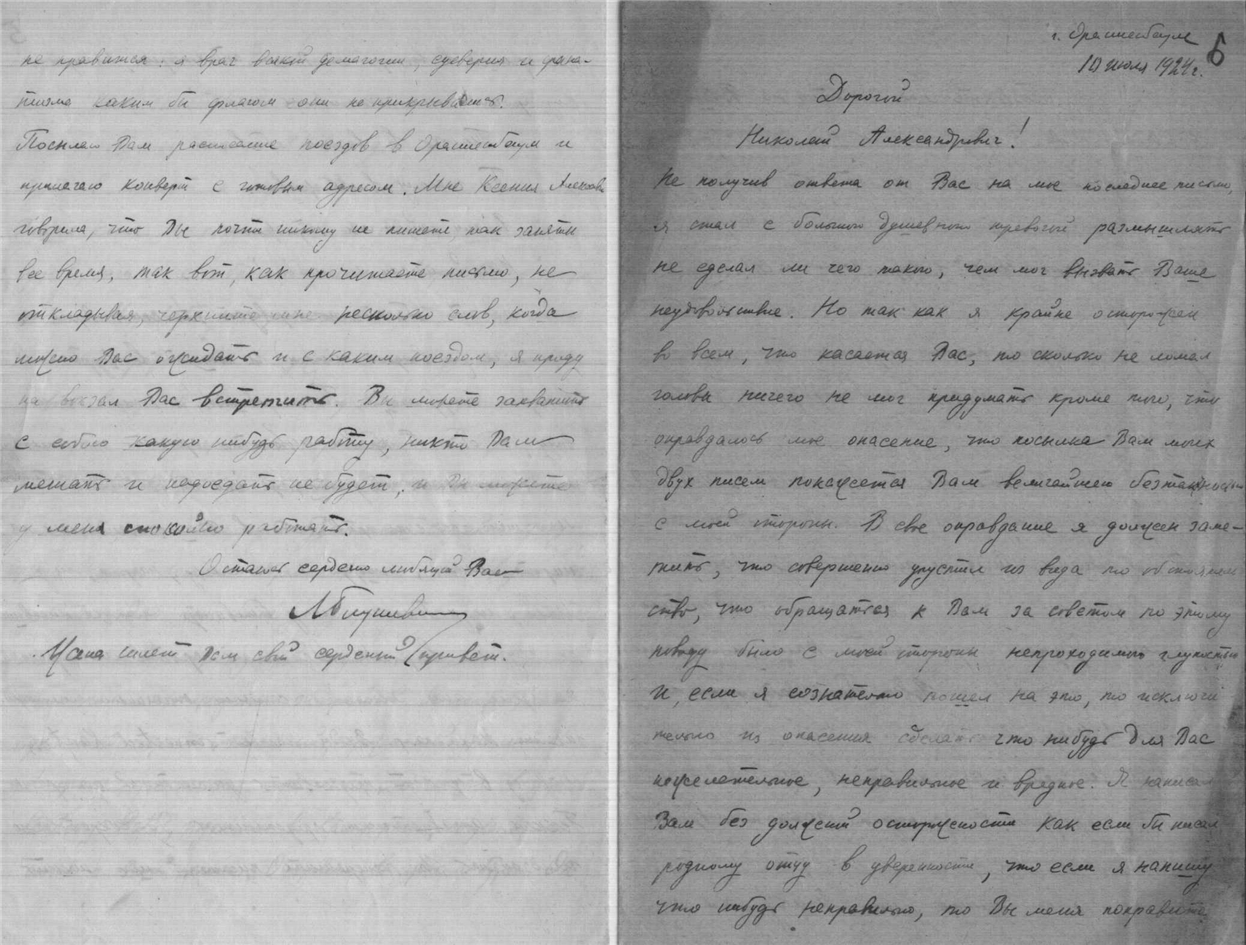 не нравится: я враг всякой демагогии, суеверия и фана-
тизма каким бы флагом они не прикрывались.
Посылаю Вам расписание поездов в Ораниенбаум и
прилагаю конверт с готовым адресом. Мне Ксения Алексеевна
говорила, что Вы почти никому не пишете, так заняты
все время, так вот, как прочитаете письмо, не
откладывая, черкните мне несколько слов, когда
можно Вас ожидать и с каким поездом, я приду
на вокзал Вас встретить. Вы можете захватить
с собою какую нибудь работу, никто Вам
мешать и надоедать не будет, и Вы можете
у меня спокойно работать.
Остаюсь сердечно любящий Вас
Мама шлет Вам свой сердечный привет.
г. Ораниенбаум
6
10 июля 1924 г.
Дорогой
Николай Александрович!
Не получив ответа от Вас на мое последнее письмо,
я стал с большой душевной тревогой размышлять
не сделал ли чего такого, чем мог вызвать Ваше
неудовольствие. Но так как я крайне осторожен
во всем, что касается Вас, то сколько не ломал
головы ничего не мог придумать кроме того, что
оправдалось мое опасение, что посылка Вам моих
двух писем покажется Вам величайшею безтактностью
с моей стороны. В свое оправдание я должен заме-
тить, что совершенно упустил из вида то обстоятель
ство, что обращаться к Вам за советом по этому
поводу было с моей стороны непроходимой глупостью
и, если я сознательно пошел на это, то исключи
тельно из опасения сделать что нибудь для Вас
нежелательное, неправильное и вредное. Я написал
Вам без должной осторожности как если бы писал
родному отцу в уверенности, что если я напишу
что нибудь неправильно, то Вы меня поправите.